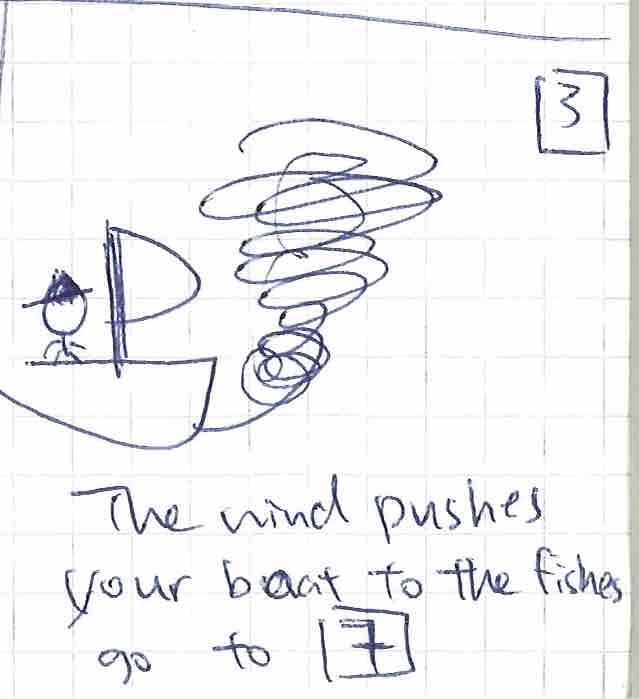 3
The wind pushes
your boat to the fishes
go to 7